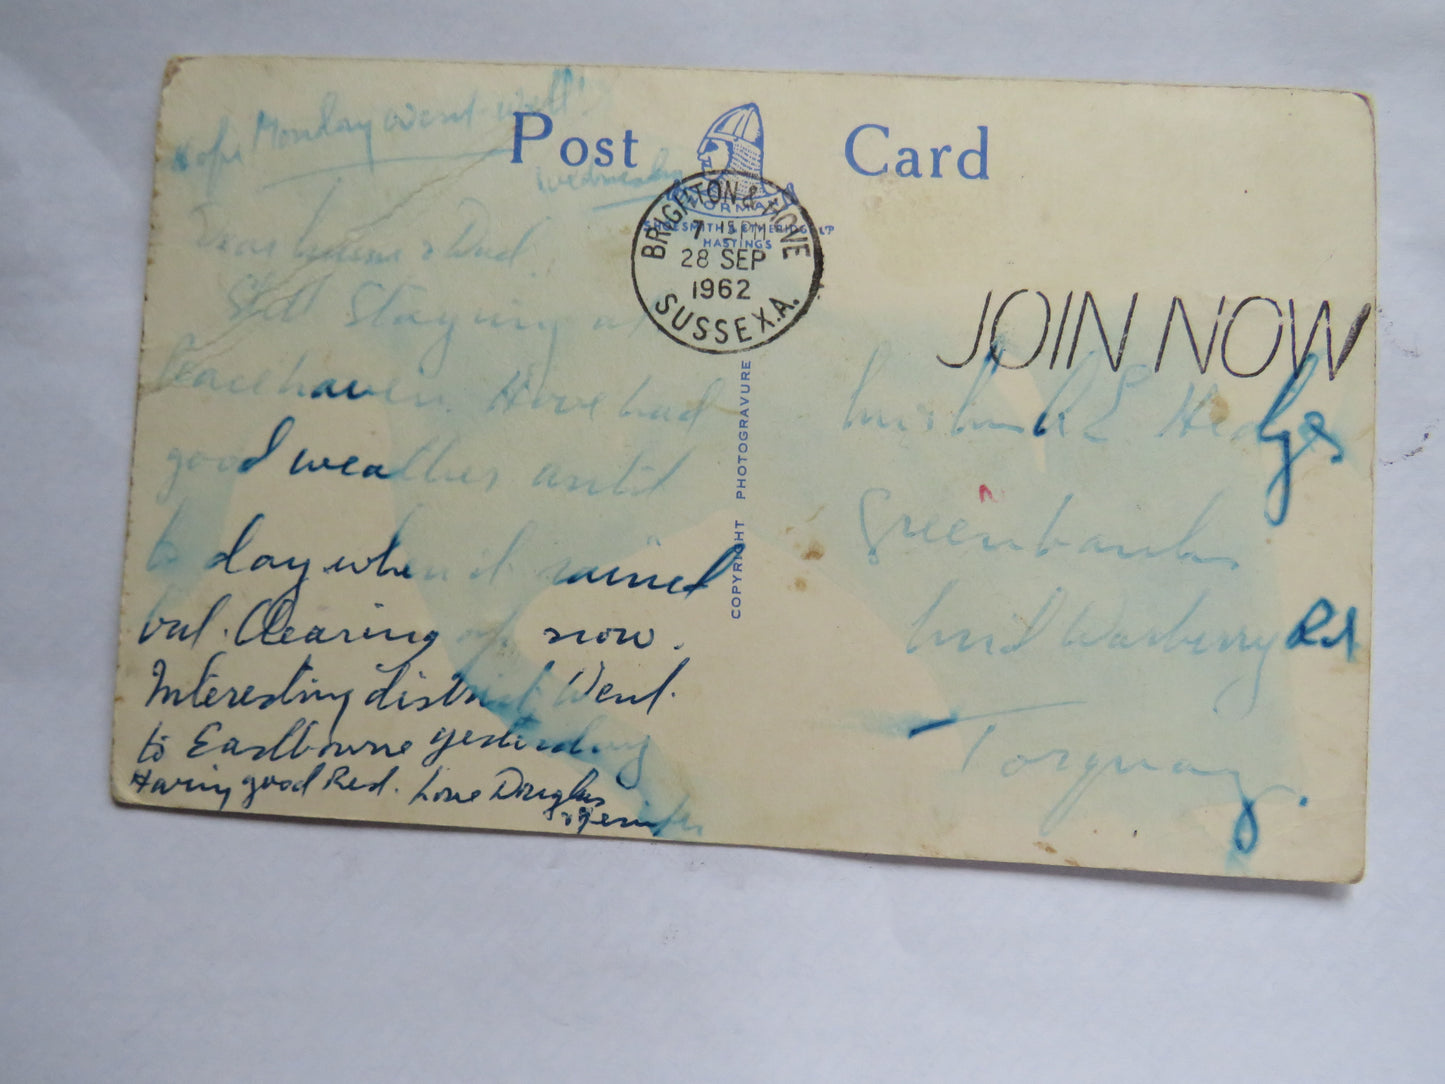 Post Card
NORMAN
SHOESMITH & ETHERIDGE LTD
HASTINGS
BRIGHTON & HOVE
7 15 PM
28 SEP
1962
SUSSEX.A.
JOIN NOW
COPYRIGHT PHOTOGRAVURE
Hope Monday went well!
Wednesday
Dear & Dad.
Still Staying at
Peacehaven. Have had
good weather until
to day when it rained
but. Clearing up now.
Interesting district Went.
to Eastbourne yesterday
Having good Rest. Love Douglas
R E Hedges
Greenbanks
Warberry Rd
Torquay.